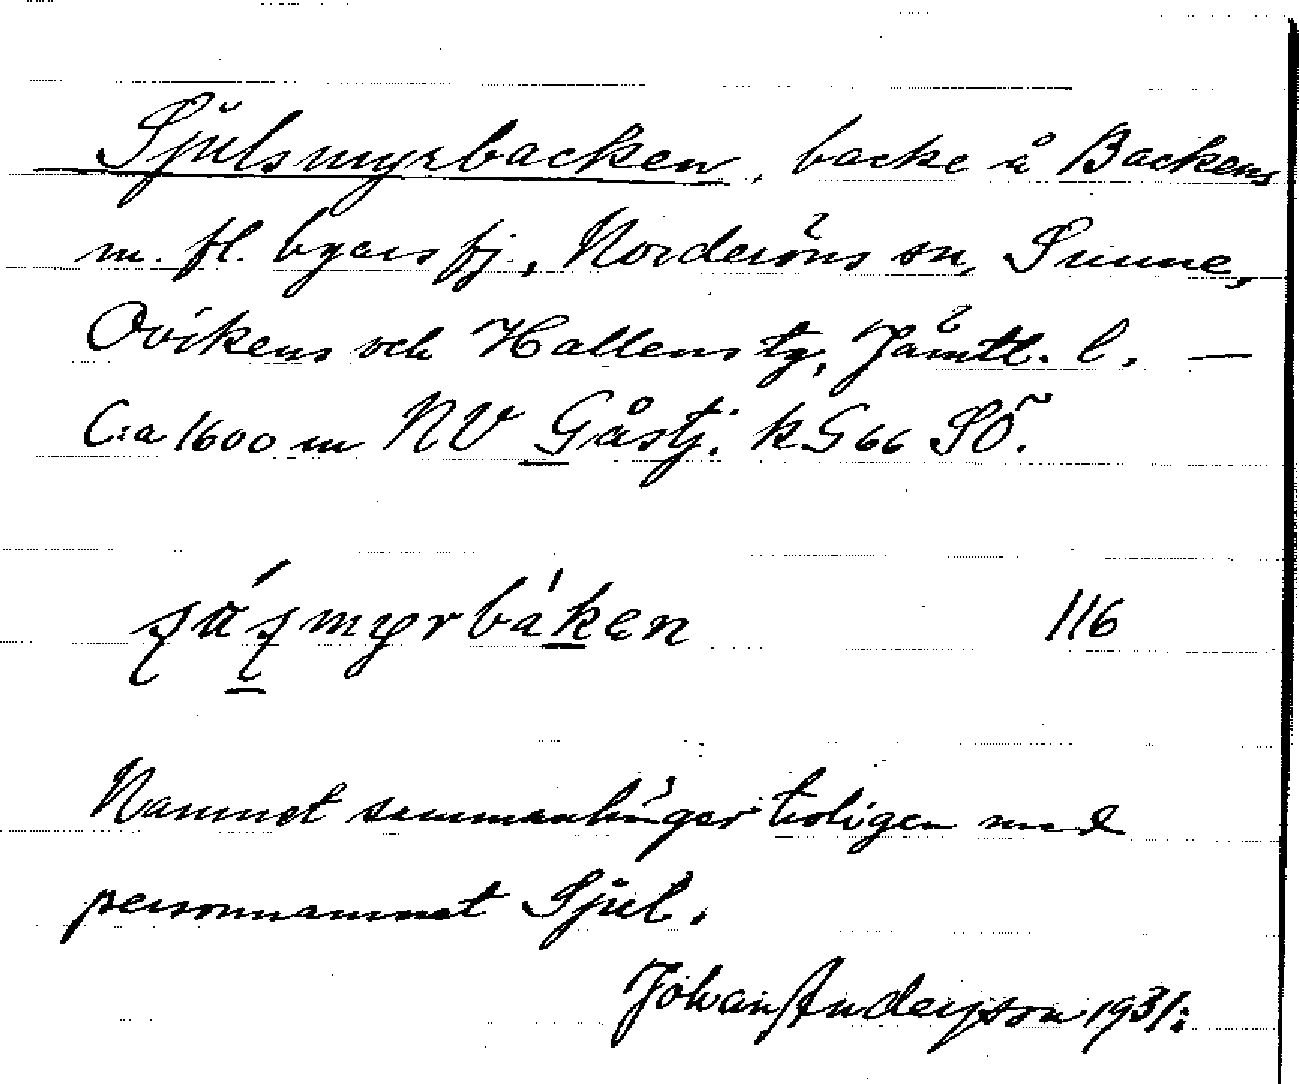 Sjulsmyrbacken, backe å Backens
m. fl. byars fj., Norderöns sn, Sunne,
Ovikens och Hallens tg, Jämtl. l. —
C:a 1600 m NV Gåstj. kG66 SÖ.
116
Namnet sammanhänger troligen med
personnamnet Sjul.
Johan Anderson 1931.